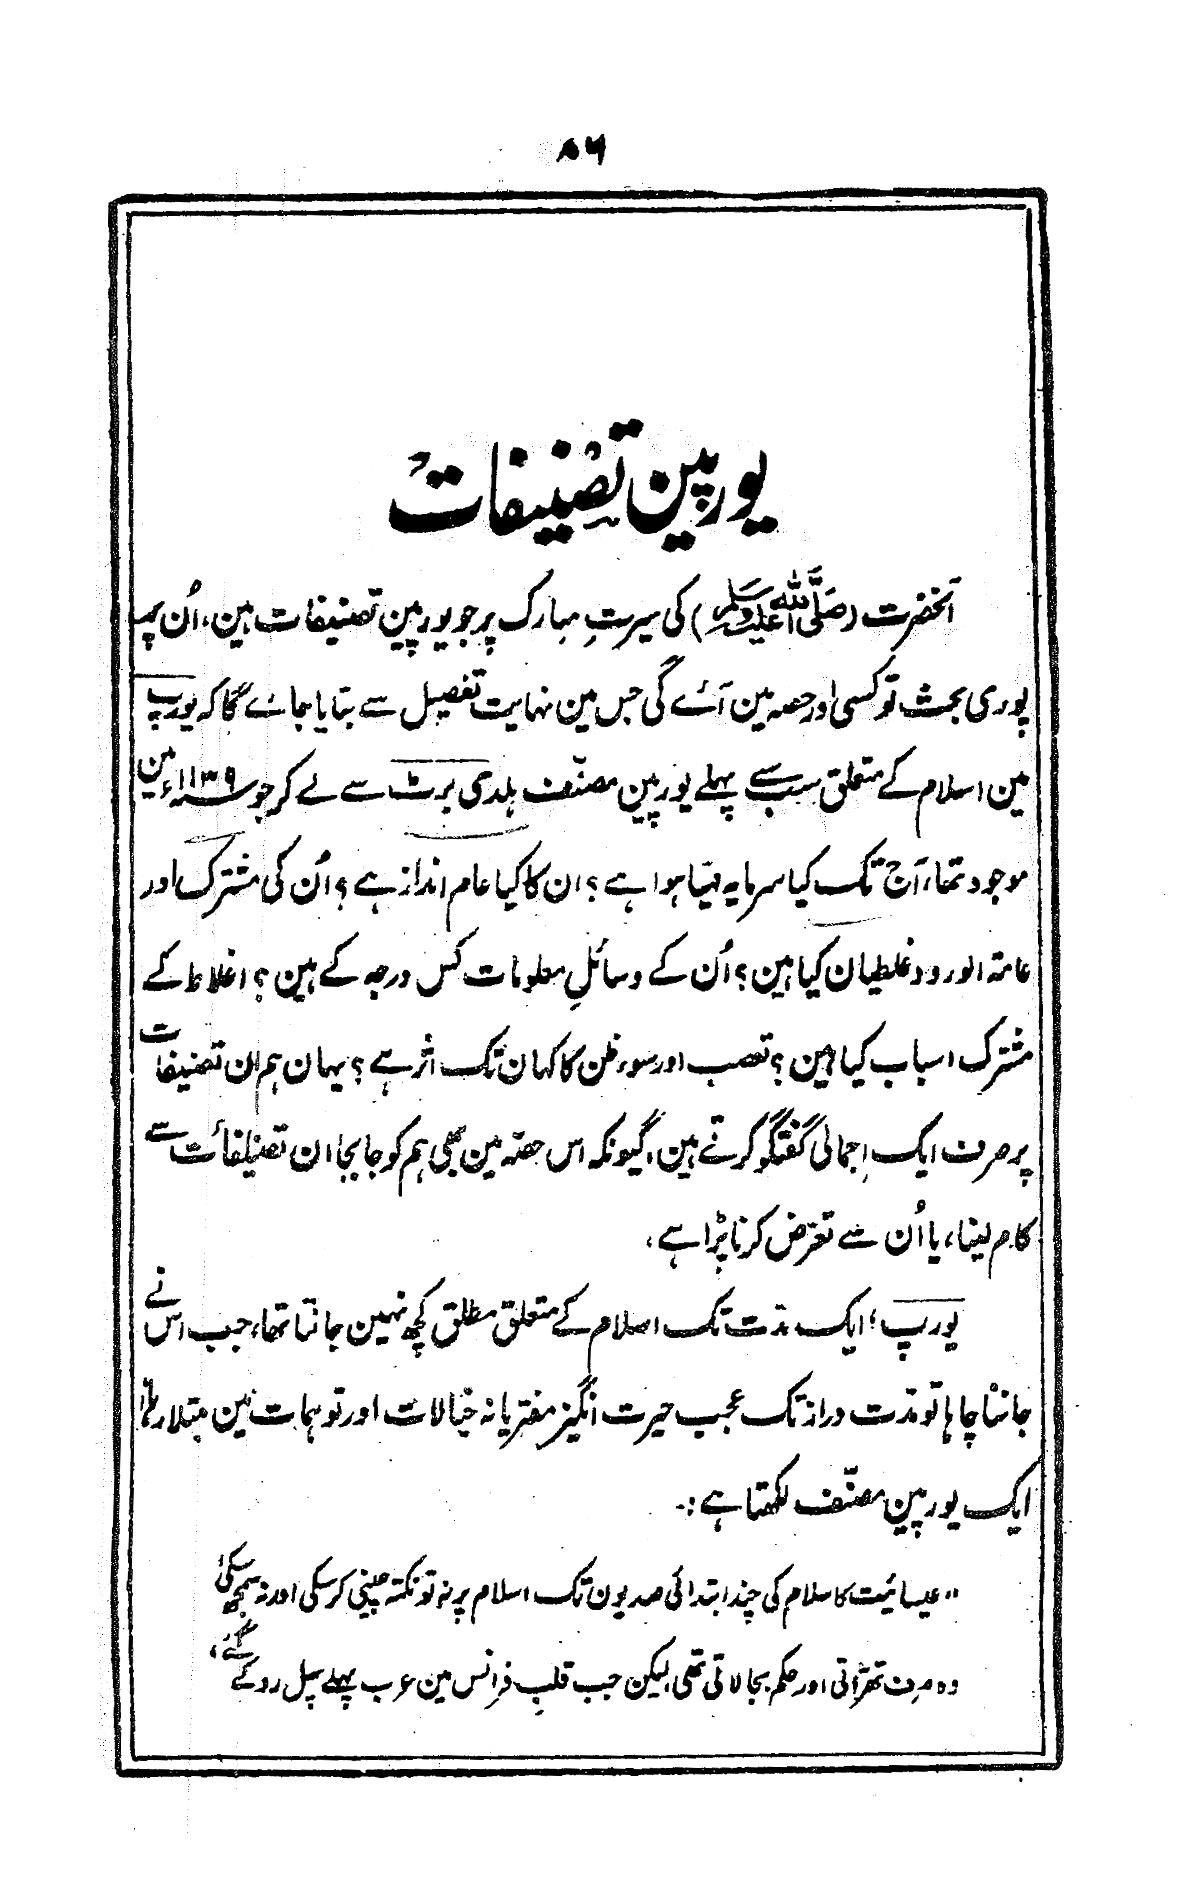 ۸۶
یورپین تصنیفات
آنحضرت (صلی اللہ علیہ وسلم) کی سیرتِ مبارک پر جو یورپین تصنیفات ہین، اُن پر
پوری بحث تو کسی اور حصہ مین آئے گی جس مین نہایت تفصیل سے بتایا جائے گا کہ یورپ
مین اسلام کے متعلق سب سے پہلے یورپین مصنّف ہلدی برٹ سے لے کر جو ۱۱۳۹ء مین
موجود تھا، آج تک کیا سرمایہ مہیّا ہوا ہے؟ ان کا کیا عام انداز ہے؟ اُن کی مشترک اور
عامۃ الورود غلطیان کیا ہین؟ اُن کے وسائلِ معلومات کس درجہ کے ہین؟ اغلاط کے
مشترک اسباب کیا ہین؟ تعصب اور سوءِ ظن کا کہان تک اثر ہے؟ یہان ہم ان تصنیفات
پر صرف ایک اجمالی گفتگو کرتے ہین، کیونکہ اس حصّہ مین بھی ہم کو جابجا ان تصنیفات سے
کام لینا، یا اُن سے تعرّض کرنا پڑا ہے،
یورپ، ایک مدّت تک اسلام کے متعلق مطلق کچھ نہین جانتا تھا، جب اس نے
جاننا چاہا تو مدّت دراز تک عجب حیرت انگیز مفتریانہ خیالات اور توہمات مین مبتلا رہا،
ایک یورپین مصنّف لکھتا ہے:-
"عیسائیت کا سلام کی چند ابتدائی صدیون تک اسلام پر نہ تو نکتہ چینی کر سکی اور نہ سمجھ سکی،
وہ صرف تھرّاتی اور حکم بجا لاتی تھی، لیکن جب قلبِ فرانس مین عرب پہلے پہل روکے گئے،